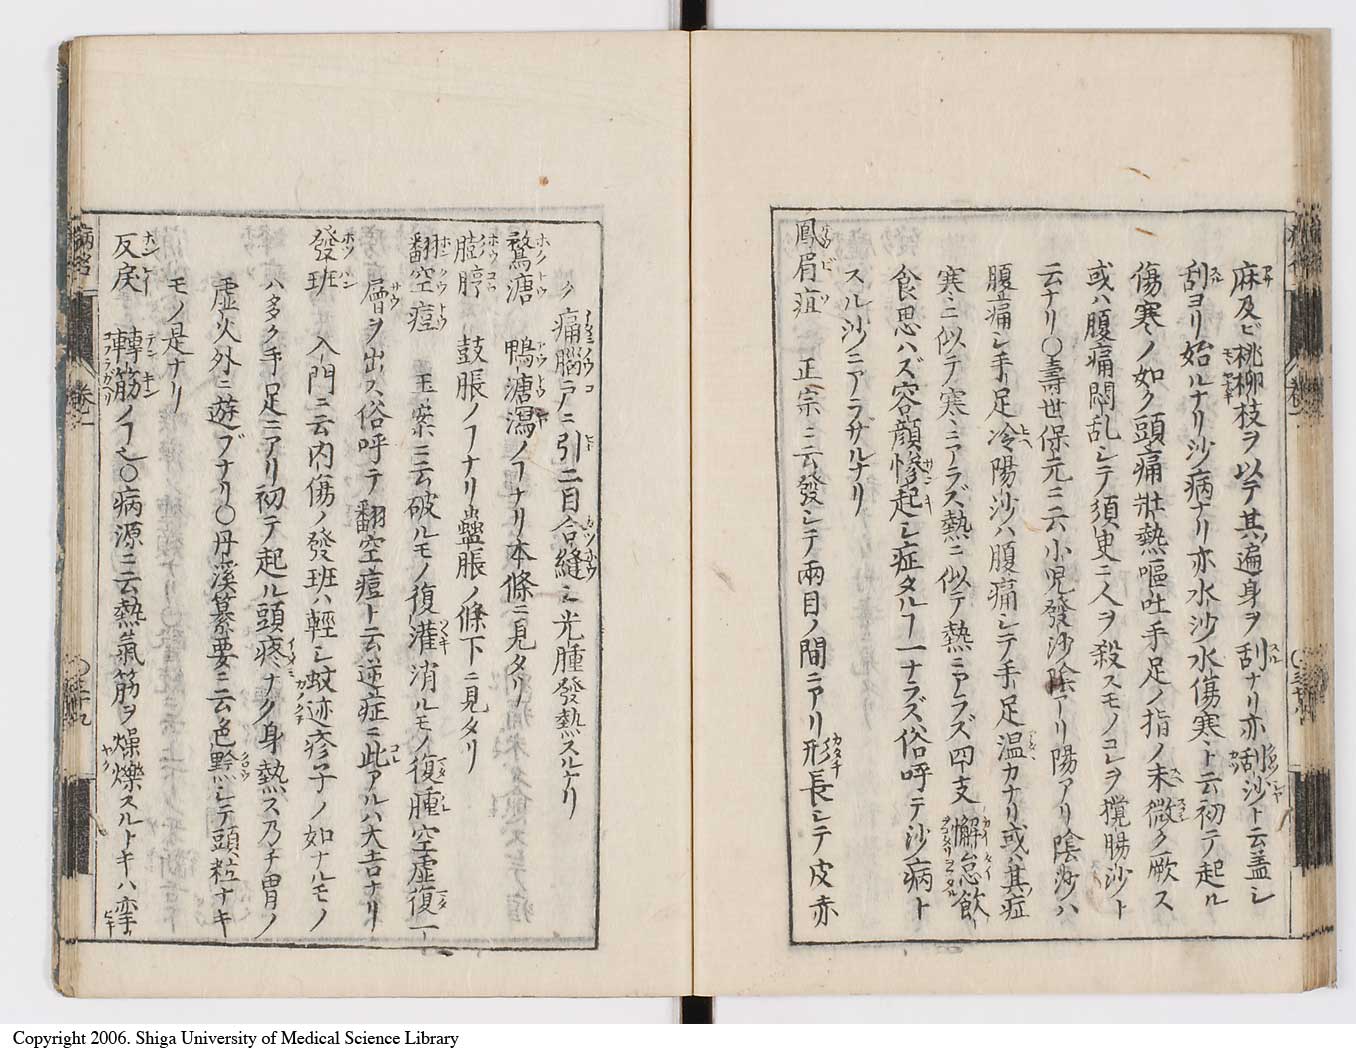 麻及ビ桃柳枝ヲ以テ其遍身ヲ刮ナリ亦刮沙ト云盖シ
刮ヨリ始ルナリ沙病ナリ亦水沙水傷寒ト云初テ起ル
傷寒ノ如ク頭痛壯熱嘔吐手足ノ指ノ末微ク厥ス
或ハ腹痛悶乱シテ須臾ニ人ヲ殺スモノコレヲ攪腸沙ト
云ナリ〇壽世保元ニ云小児發沙陰アリ陽アリ陰沙ハ
腹痛シ手足冷陽沙ハ腹痛シテ手足温カナリ或ハ其症
寒ニ似テ寒ニアラズ熱ニ似テ熱ニアラズ四支懈怠飲
食思ハズ容顔惨起シ症タルヿ一ナラズ俗呼テ沙病ト
スル沙ニアラザルナリ
鳳眉疽 正宗ニ云發シテ兩目ノ間ニアリ形長シテ皮赤
痛腦ニアニ引二目合縫シ光腫發熱スルナリ
鶩溏 鴨溏瀉ノヿナリ本條ニ見タリ
膨脝 鼓脹ノヿナリ蠱脹ノ條下ニ見タリ
翻空痘 玉案ニ云破ルモノ復灌消ルモノ復腫空虚復一
層ヲ出ス俗呼テ翻空痘ト云逆症ニ此アルハ大吉ナリ
發班 入門ニ云内傷ノ發班ハ輕シ蚊迹疹子ノ如ナルモノ
ハ多ク手足ニアリ初テ起ル頭疼ナク身熱ス乃チ胃ノ
虚火外ニ遊ブナリ〇丹溪纂要ニ云色黙シテ頭粒ナキ
モノ是ナリ
反戻 轉筋ノヿ也〇病源ニ云熱氣筋ヲ燥爍スルトキハ攣
Copyright 2006. Shiga University of Medical Science Library